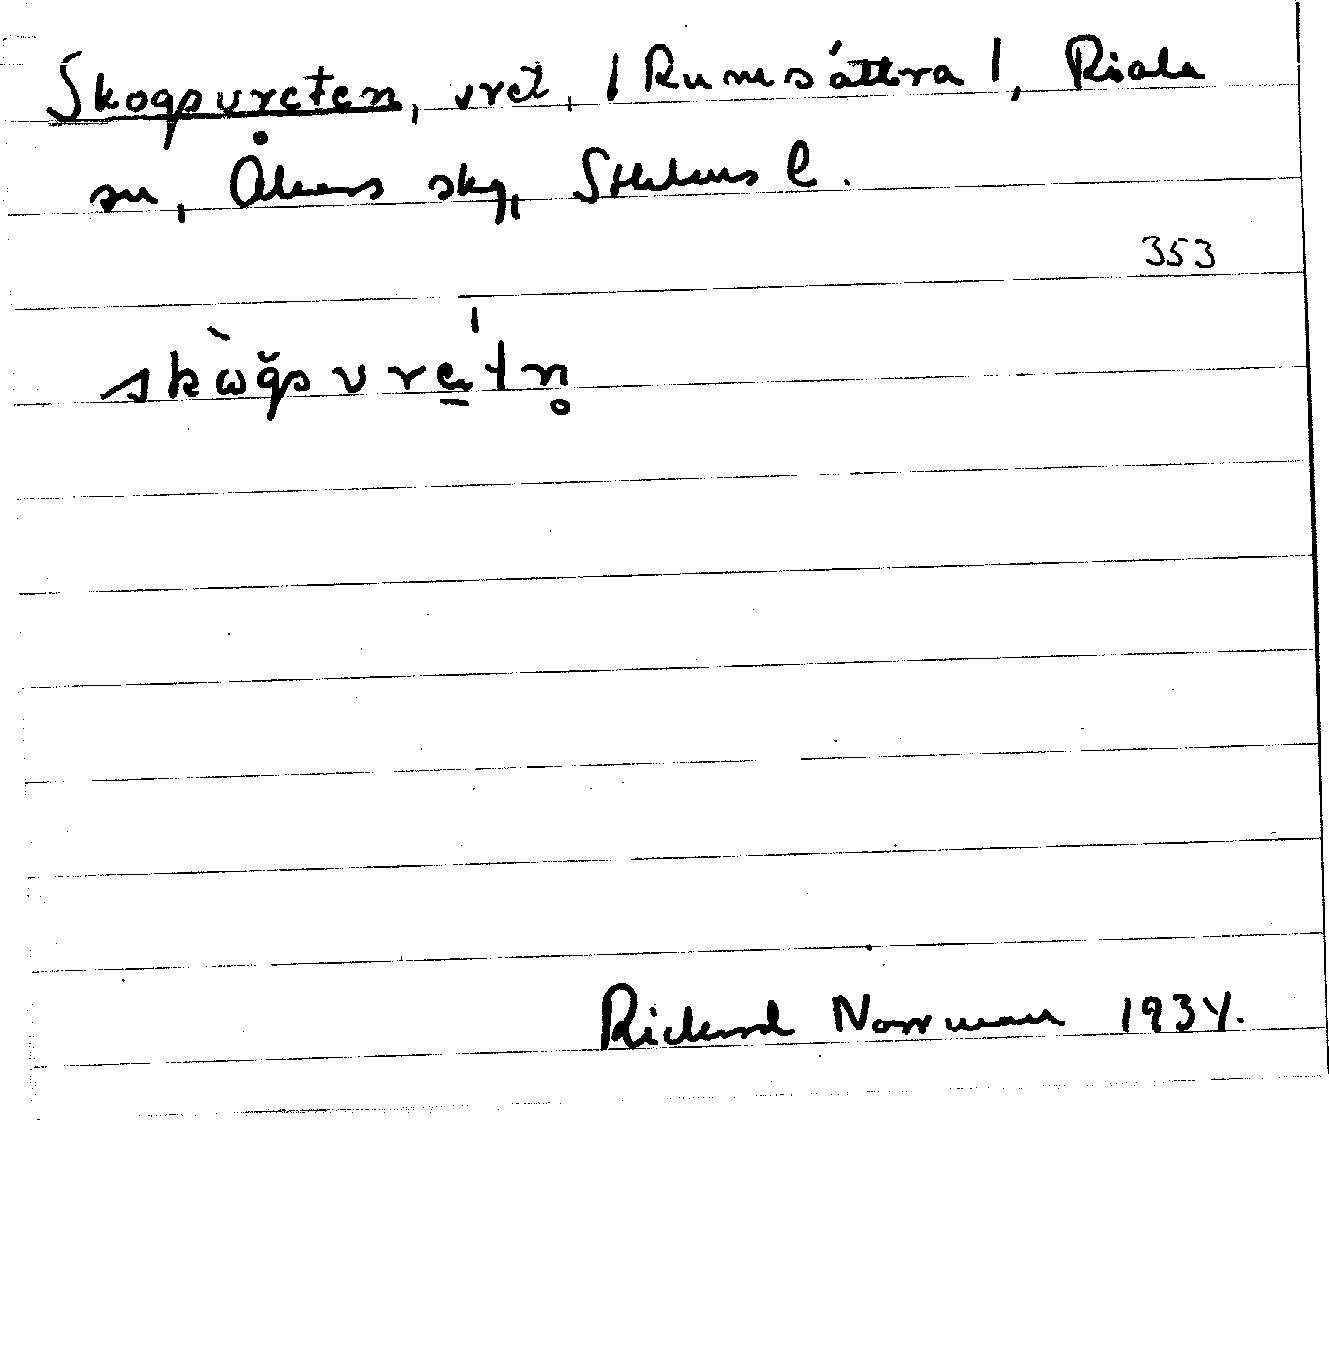 Skogsvreten, vret, | Rumsättra |, Riala
sn, Åkers skg, Sthlms l.
353
skògsvretn̥
Rickard Norrman 1934.